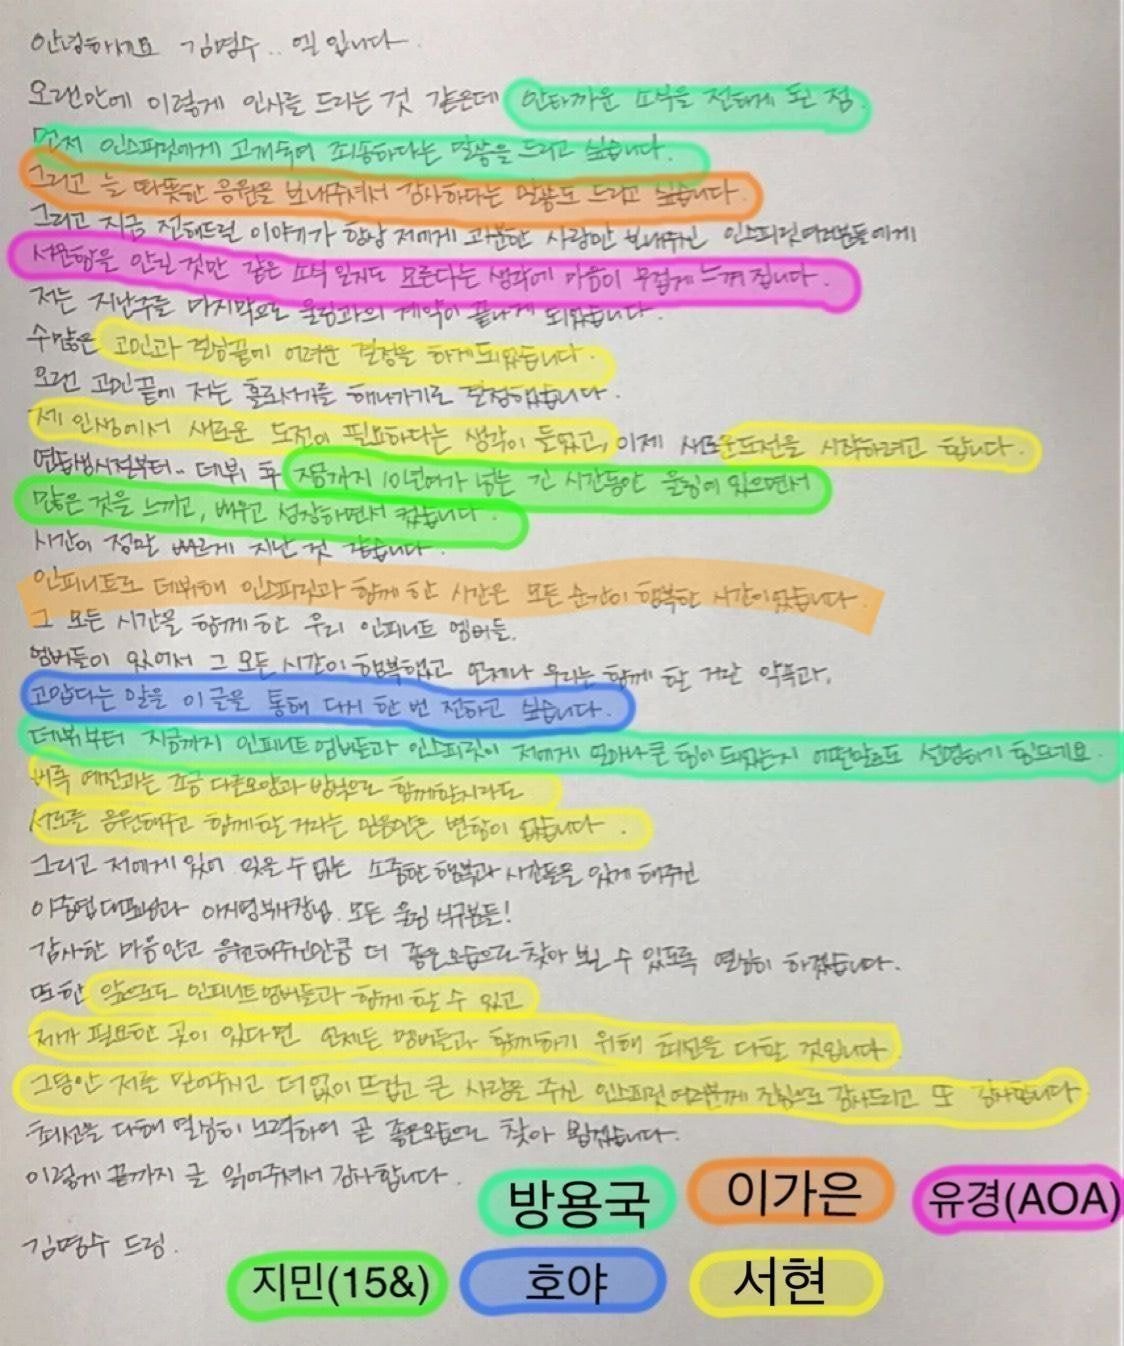 안녕하세요 김명수.. 엘 입니다.
오랜만에 이렇게 인사를 드리는 것 같은데 안타까운 소식을 전하게 된 점
먼저 인스피릿에게 고개숙여 죄송하다는 말씀을 드리고 싶습니다.
그리고 늘 따뜻한 응원을 보내주셔서 감사하다는 말씀도 드리고 싶습니다.
그리고 지금 전해드릴 이야기가 항상 저에게 과분한 사랑만 보내주신 인스피릿여러분들에게
서운함을 안긴 것만 같은 소식 일지도 모른다는 생각에 마음이 무겁게 느껴 집니다.
저는 지난주를 마지막으로 울림과의 계약이 끝나게 되었습니다.
수많은 고민과 결심끝에 어려운 결정을 하게되었습니다.
오랜 고민끝에 저는 홀로서기를 해나가기로 결정했습니다.
제 인생에서 새로운 도전이 필요하다는 생각이 들었고, 이제 새로운도전을 시작하려고 합니다.
연습생시절부터.. 데뷔 후 지금까지 10년여가 넘는 긴 시간동안 울림에 있으면서
많은 것을 느끼고, 배우고 성장하면서 컸습니다.
시간이 정말 빠르게 지난 것 같습니다.
인피니트로 데뷔해 인스피릿과 함께 한 시간은 모든 순간이 행복한 시간이었습니다.
그 모든 시간을 함께 한 우리 인피니트 멤버들.
멤버들이 있어서 그 모든 시간이 행복했고 언제나 우리는 함께 할 거란 약속과,
고맙다는 말을 이 글을 통해 다시 한 번 전하고 싶습니다.
데뷔부터 지금까지 인피니트멤버들과 인스피릿이 저에게 얼마나 큰 힘이 되었는지 어떤말로도 설명하기 힘드네요.
비록 예전과는 조금 다른모양과 방식으로 함께할지라도
서로를 응원해주고 함께할거라는 믿음만은 변함이 없습니다.
그리고 저에게 있어 잊을 수 없는 소중한 행복과 시간들을 있게 해주신
이중엽대표님과 이지영부사장님. 모든 울림 식구분들!
감사한 마음안고 응원해주신만큼 더 좋은모습으로 찾아 뵐 수 있도록 열심히 하겠습니다.
또한 앞으로도 인피니트멤버들과 함께 할 수 있고
제가 필요한 곳이 있다면 언제든 멤버들과 함께하기 위해 최선을 다할 것입니다.
그동안 저를 믿어주시고 더없이 뜨겁고 큰 사랑을 주신 인스피릿 여러분께 진심으로 감사드리고 또 감사합니다
최선을 다해 열심히 노력하여 곧 좋은모습으로 찾아 뵙겠습니다.
이렇게 끝까지 글 읽어주셔서 감사합니다.
김명수 드림.
방용국 이가은 유경(AOA)
지민(15&) 호야 서현